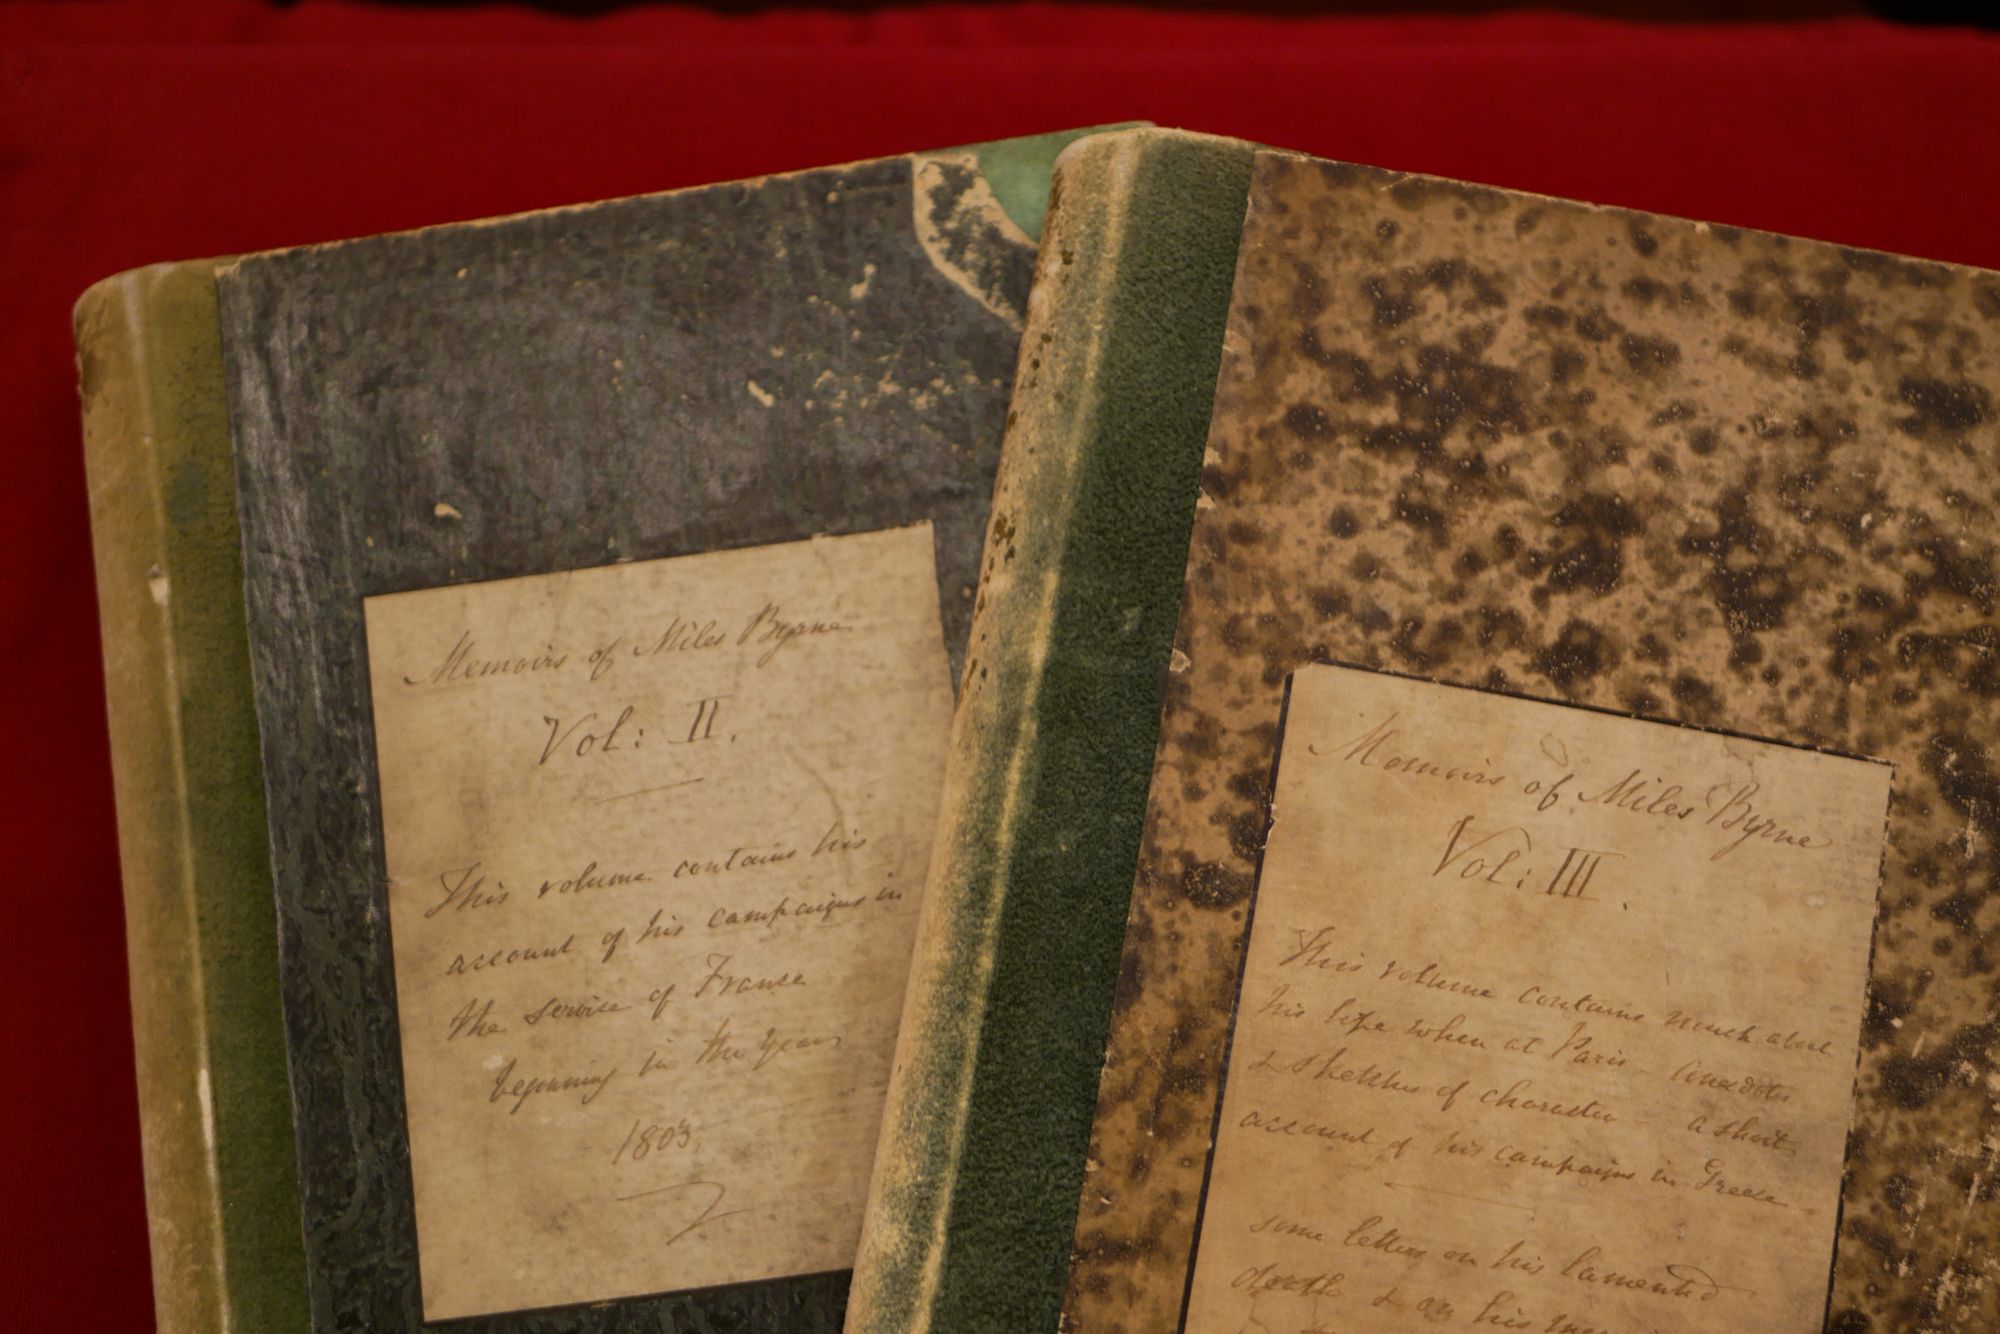 Memoirs of Miles Byrne
Vol: II.
This volume contains his
account of his campaigns in
the servise of Franse
beginning in the years
1803.
Memoirs of Miles Byrne
Vol: III.
This volume contains much about
his life when at Paris - Anecdotes
& sketches of character - a short
account of his campaigns in Greece -
some letters on his lamented
death & on his